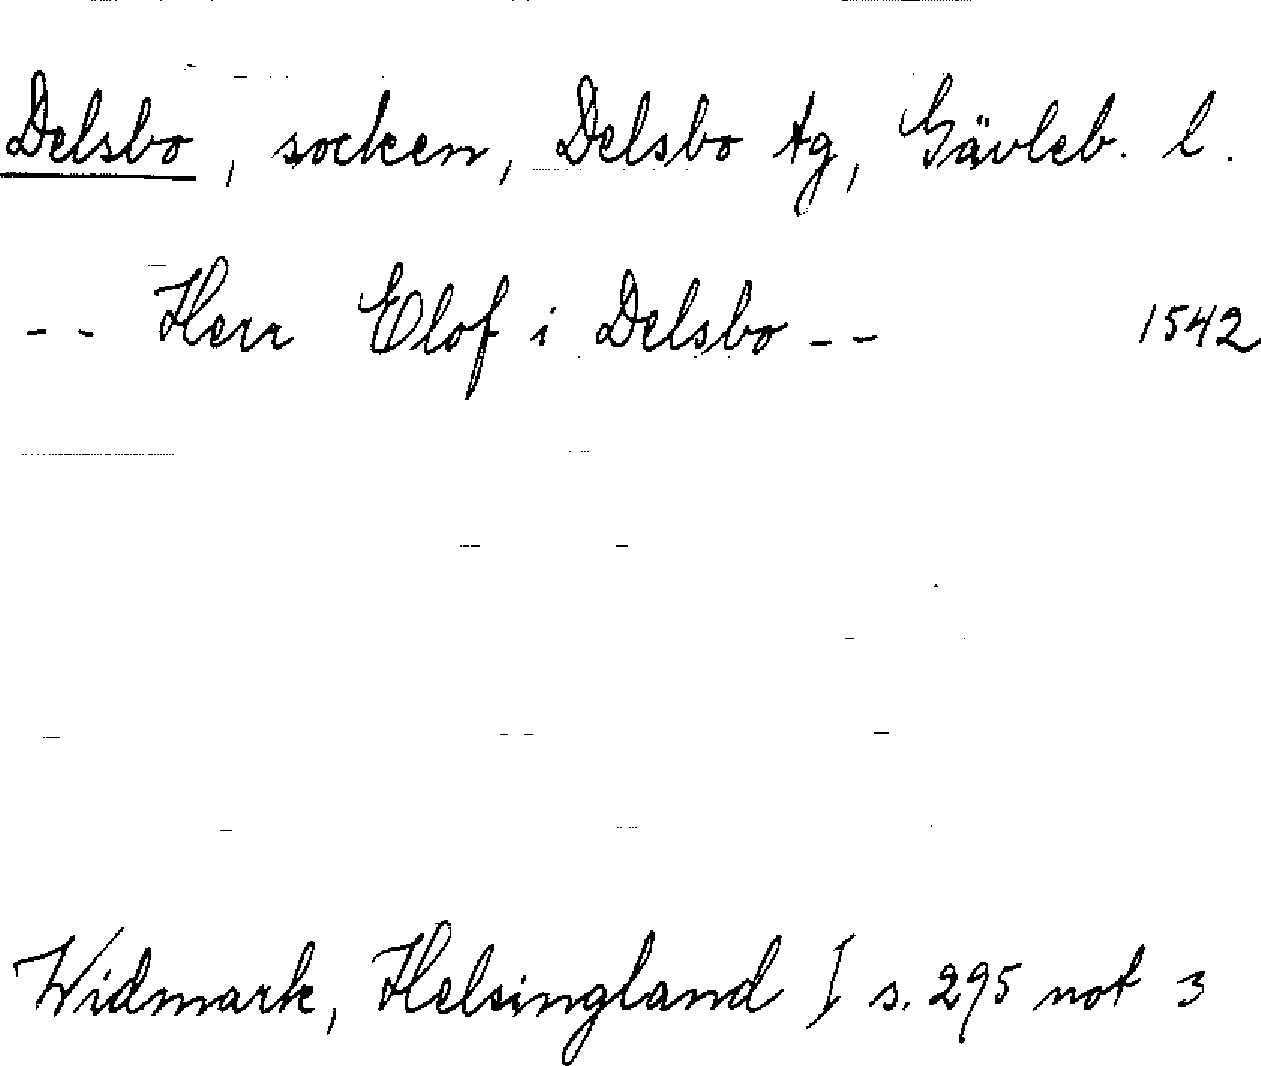 Delsbo, socken, Delsbo tg, Gävleb. l.
-- Herr Elof i Delsbo -- 1542
Widmark, Helsingland I s. 295 not 3